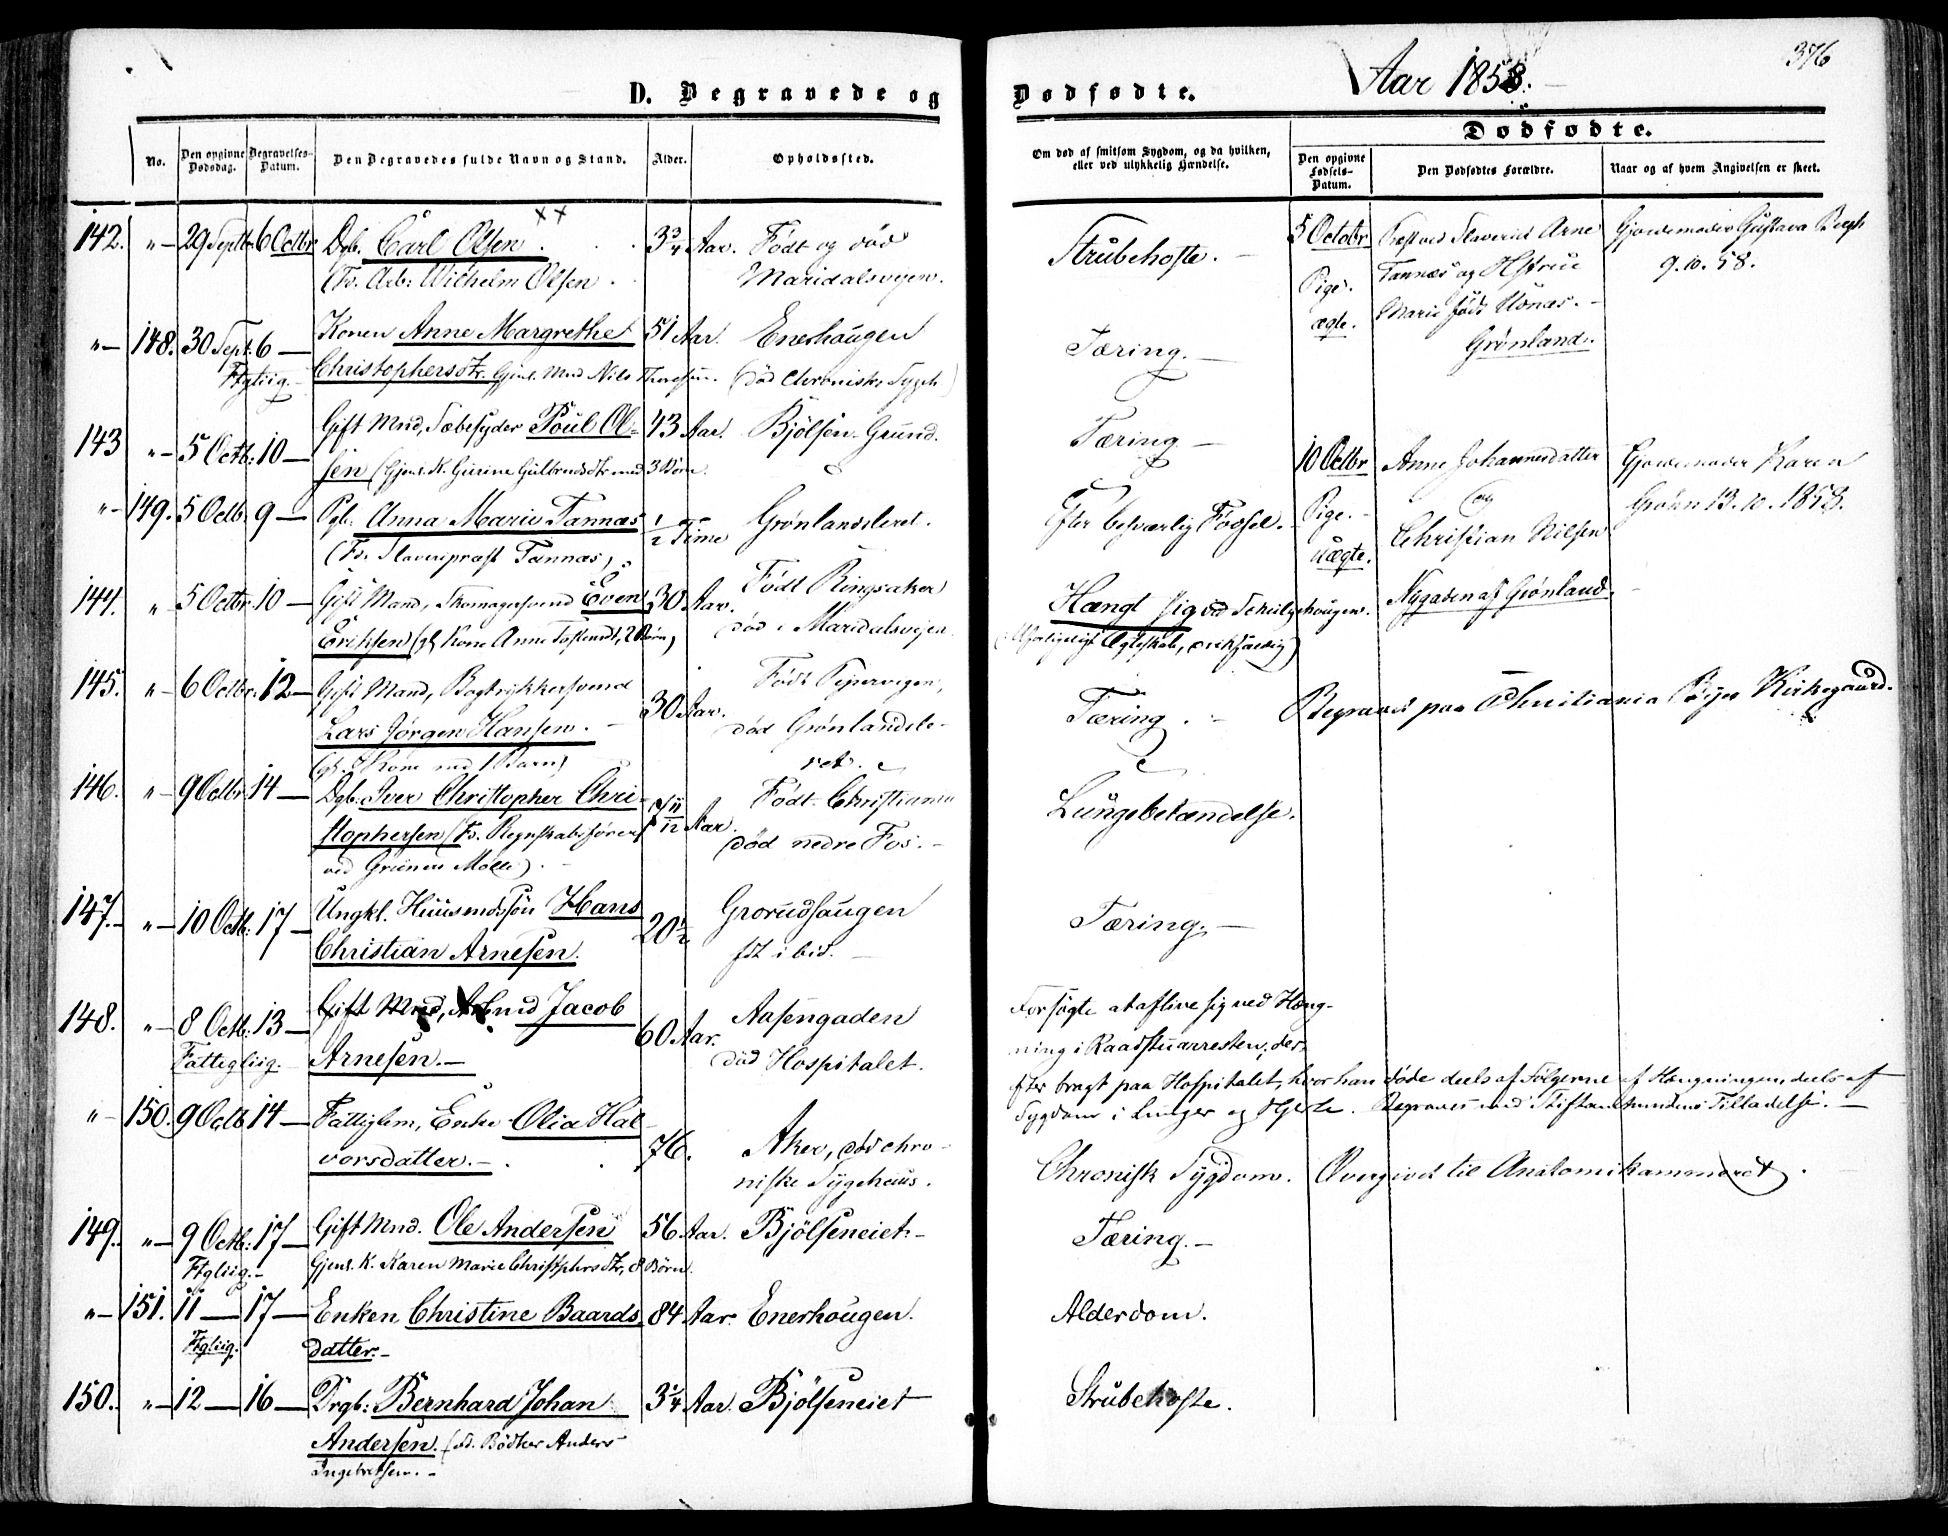 376
D. Begravede og Dødfødte. Aar 1858.
Dødfødte.
No. Den opgivne Dødsdag. Begravelses-Datum. Den Begravedes fulde Navn og Stand. Alder. Opholdssted.
Om død af smitsom Sygdom, og da hvilken, eller ved ulykkelig Hændelse.
Den opgivne Fødsels-Datum. Den Dødfødtes Forældre. Naar og af hvem Angivelsen er skeet.
142. " 29 Septbr 6 Octbr Dgb. Carl Olsen. 3 3/4 Aar. Født og død
(Fr. Arb: Wilhelm Olsen. Maridalsvejen.
Strubehoste.
" 148. 30 Sept. 6 — Konen Anne Margrethe 51 Aar. Enerhaugen
Ftgliig. Christophersdtr. Gjenl. Mnd Nils Thoresen. (død Chroniske Sygeh)
Tæring. —
143 " 5 Octb: 10 — Gift Mnd, Sæbesyder Poul Ol- 43 Aar. Bjølsen-Grund.
sen (Gjenl. K. Gurine Gulbrndsdtr med 3 Børn.
Tæring —
" 149. 5 Octb. 9 — Pgb: Anna Marie Tannæs 1/2 Time Grønlandsleret.
(Fr. Slaveripræst Tannæs)
Efter besværlig Fødsel.
144. " 5 Octbr. 10 — Gift Mand, Skomagersvend Even 30 Aar. Født Ringsaker
Eriksen (gl. Kone Anne Tostensdt, 2 Børn) død i Maridalsvejen.
Hængt sig ved Schulzehougen.
(Ulykkeligt Ægteskab, )
145. " 6 Octbr. 12 — Gift Mand, Bogtrykkersvend 30 Aar. Født Pipervigen,
Lars Jørgen Hansen. — død Grønlandsle-
(gl. Kone med 1 Barn) ret.
Tæring. — Begravet paa Christiania Byes Kirkegaard.
146. " 9 Octbr 14 — Dgb. Iver Christopher Chri- 7 11/12 Aar. Født Christiania
stophersen (Fr. Regnskabsfører død nedre Fos. —
ved Grüners Mølle).
Lungebetændelse.
147. " 10 Octb: 17 — Ungkl. Huusmdssøn Hans 20 1/2 Grorudhaugen
Christian Arnesen. fdt ibid.
Tæring. —
148. " 8 Octb. 13 — Gift Mnd, Arbmd Jacob 60 Aar. Aasengaden
Fattigliig. Arnesen. — død Hospitalet.
Forsøgte at aflive sig ved Hæng-
ning i Raadstuarresten, der-
efter bragt paa Hospitalet, hvor han døde deels af Følgerne af Hængningen, deels af
Sygdom i Lunger og Hjerte. Begraves med Stiftamtmandens Tilladelse. —
" 150. 9 Octb 14 — Fattiglem, Enke Olia Hal- 76. Aker, død chro-
vorsdatter. — niske Sygehuus.
Chronisk Sygdom. Overgivet til Anatomikammeret.
149. " 9 Octb: 17 — Gift Mnd. Ole Andersen 56 Aar. Bjølseneiet —
Ftgliig. — Gjenl. K. Karen Marie Christphrsdtr, 8 Børn.
Tæring. —
" 151. 11 — 17 — Enken Christine Baards 84 Aar. Enerhougen.
Ftgliig. datter. —
Alderdom.
150. " 12 — 16 — Drgb: Bernhard Johan 3 1/4 Aar. Bjølseneiet
Andersen. (Fd. Bødker Anders
Ingebretsen. —
Strubehoste.
5 Octobr Præst ved Slaveriet Arne Gjordemoder Gustava Bergh
Pige. Tannæs og Hstrue 9.10.58.
ægte. Marie født Hønæs. —
Grønland.
10 Octbr Anne Johannesdatter Gjordemoder Karen
Pige. — og Grønn 13.10.1858.
uægte. Christian Nilsen
Nygaden af Grønland.